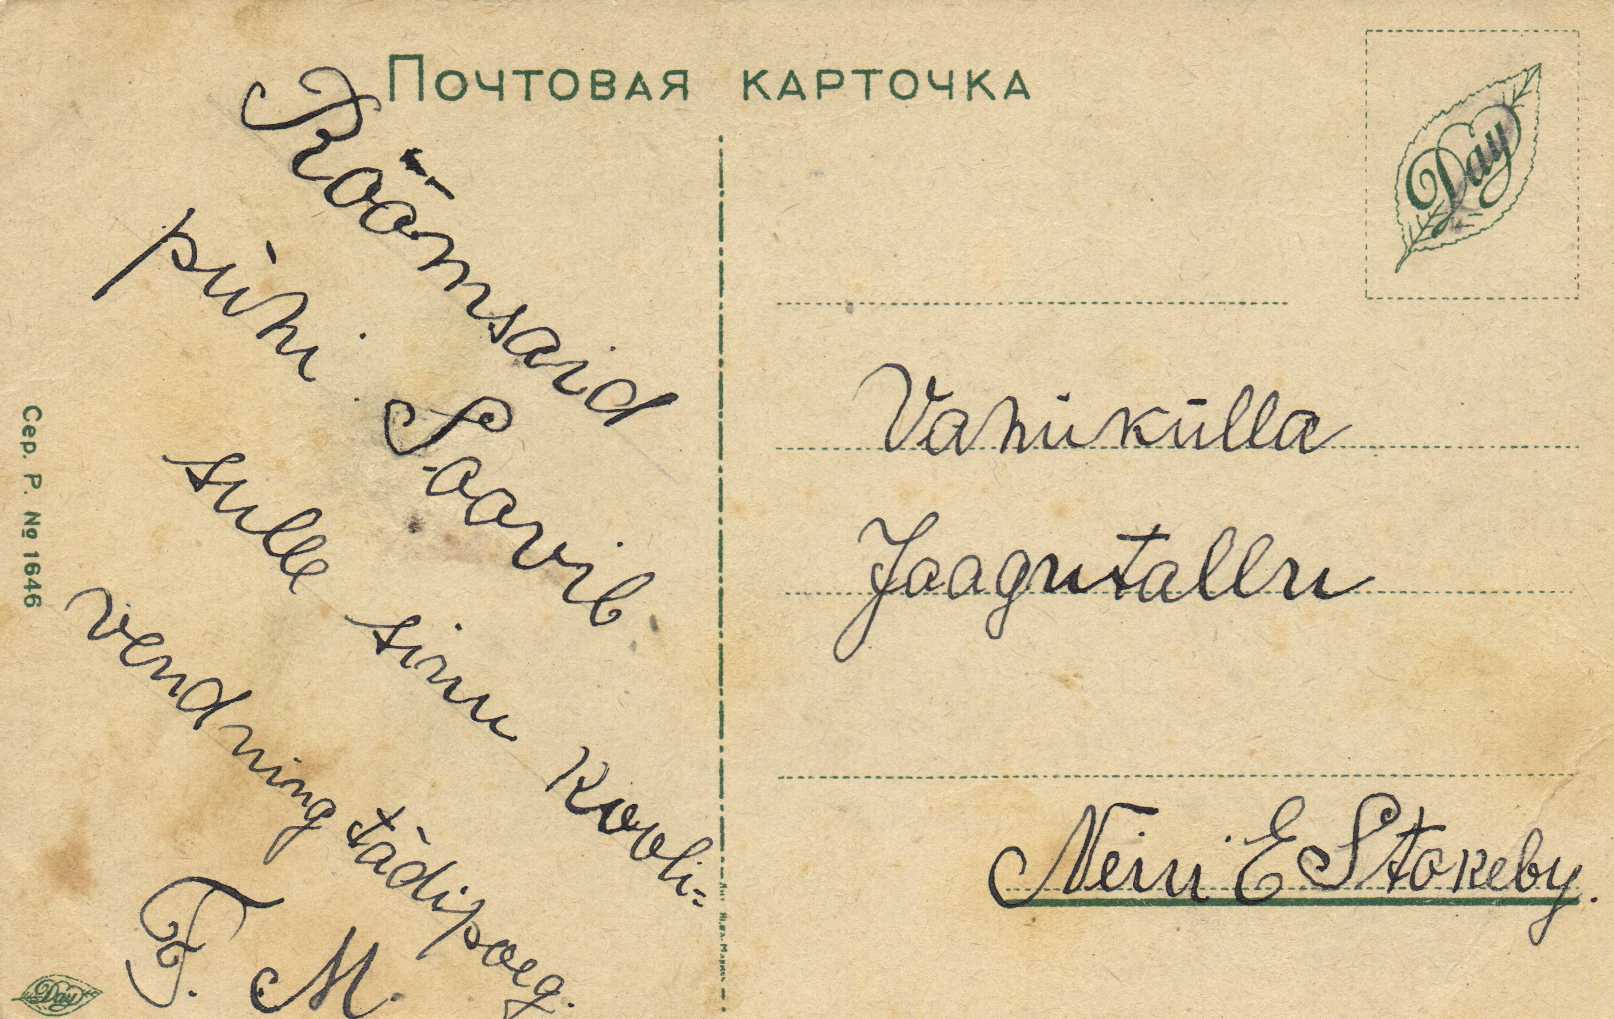 Почтовая карточка
Day
Rõõmsaid
pühi Soovib
sulle sinu kooli=
vend ning tädipoeg.
F. M.
Vanikülla
Jaagutallu
Neiu E Stokeby.
Сер. Р. № 1646
Day